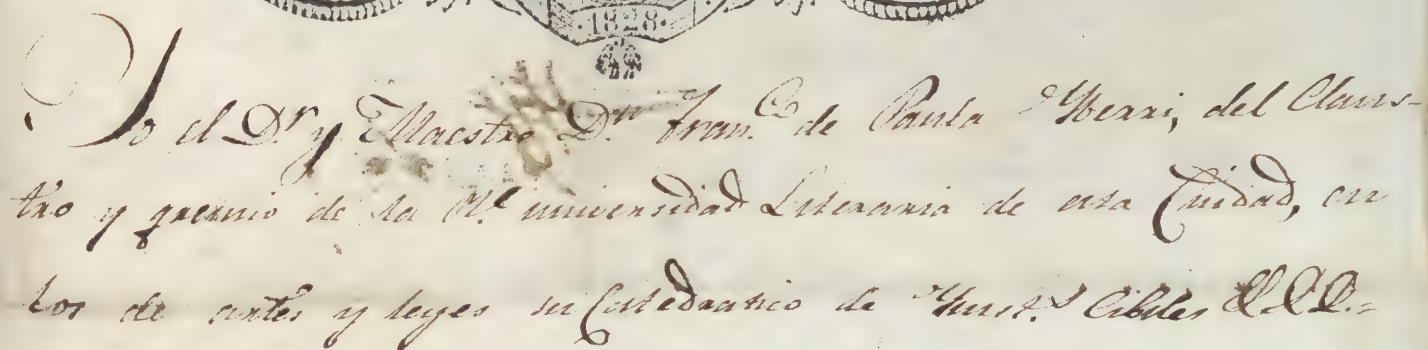 1828
Yo el Dr. y Maestro Dn. Fran.co de Paula Yberri, del Claus-
tro y gremio de la Rl. universidad Literaria de esta Ciudad, en
los de artes y leyes su Catedratico de Ynst.s Cibiles